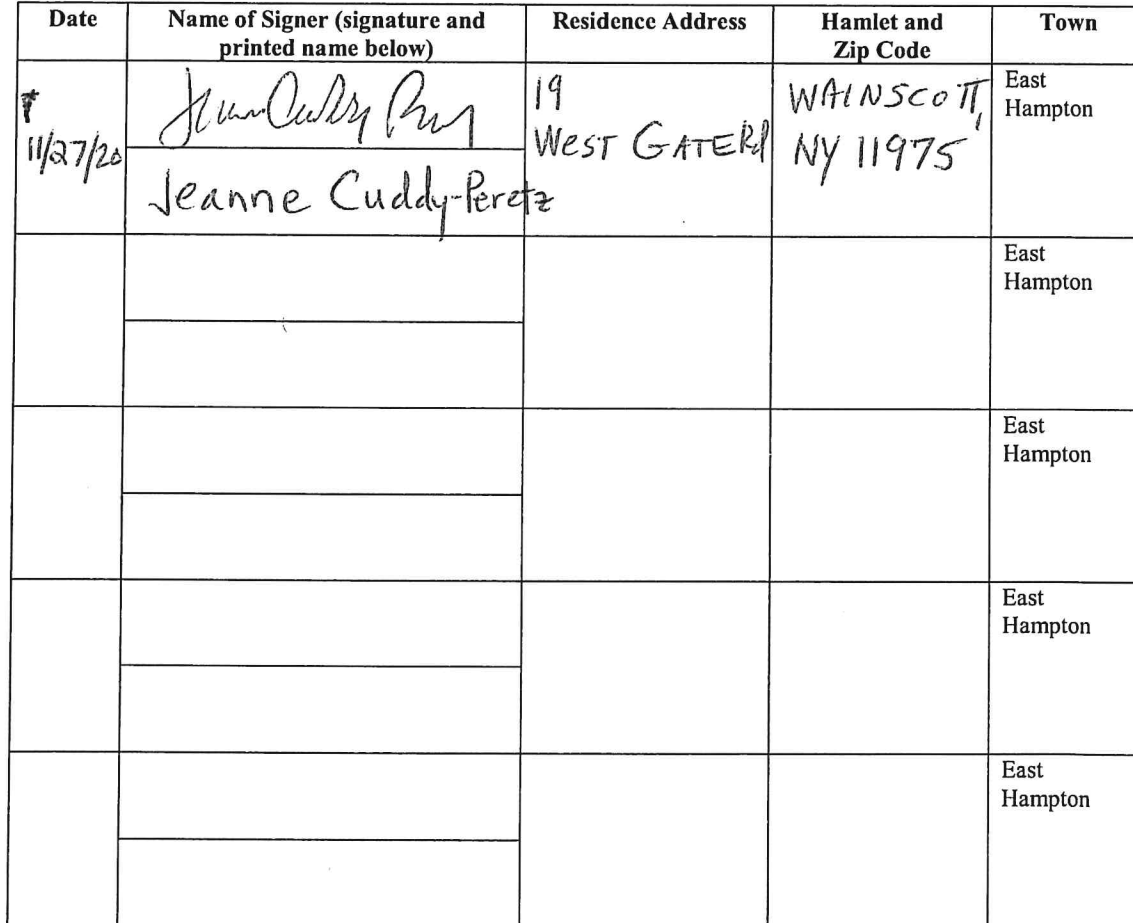 Date
Name of Signer (signature and
printed name below)
Residence Address
Hamlet and
Zip Code
Town
11/27/20
Jeanne Cuddy-Peretz
19
WEST GATE Rd
WAINSCOTT,
NY 11975
East
Hampton
East
Hampton
East
Hampton
East
Hampton
East
Hampton